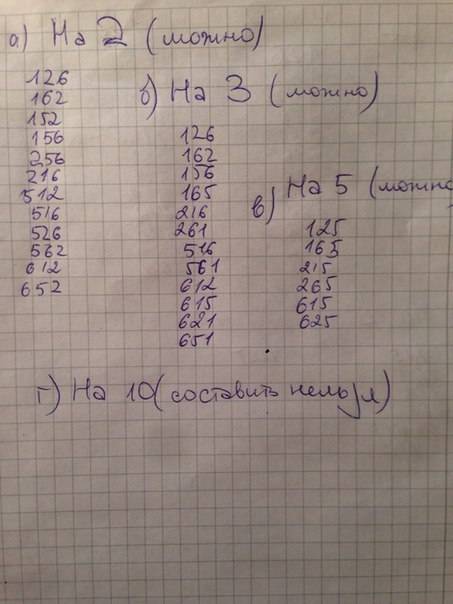 а) На 2 (можно)
126
162
152
156
256
216
512
516
526
562
612
652
б) На 3 (можно)
126
162
156
165
216
261
516
561
612
615
621
651
в) На 5 (можно)
125
165
215
265
615
625
г) На 10 (составить нельзя)